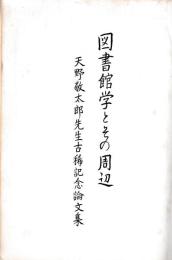 図書館学とその周辺
天野敬太郎先生古稀記念論文集